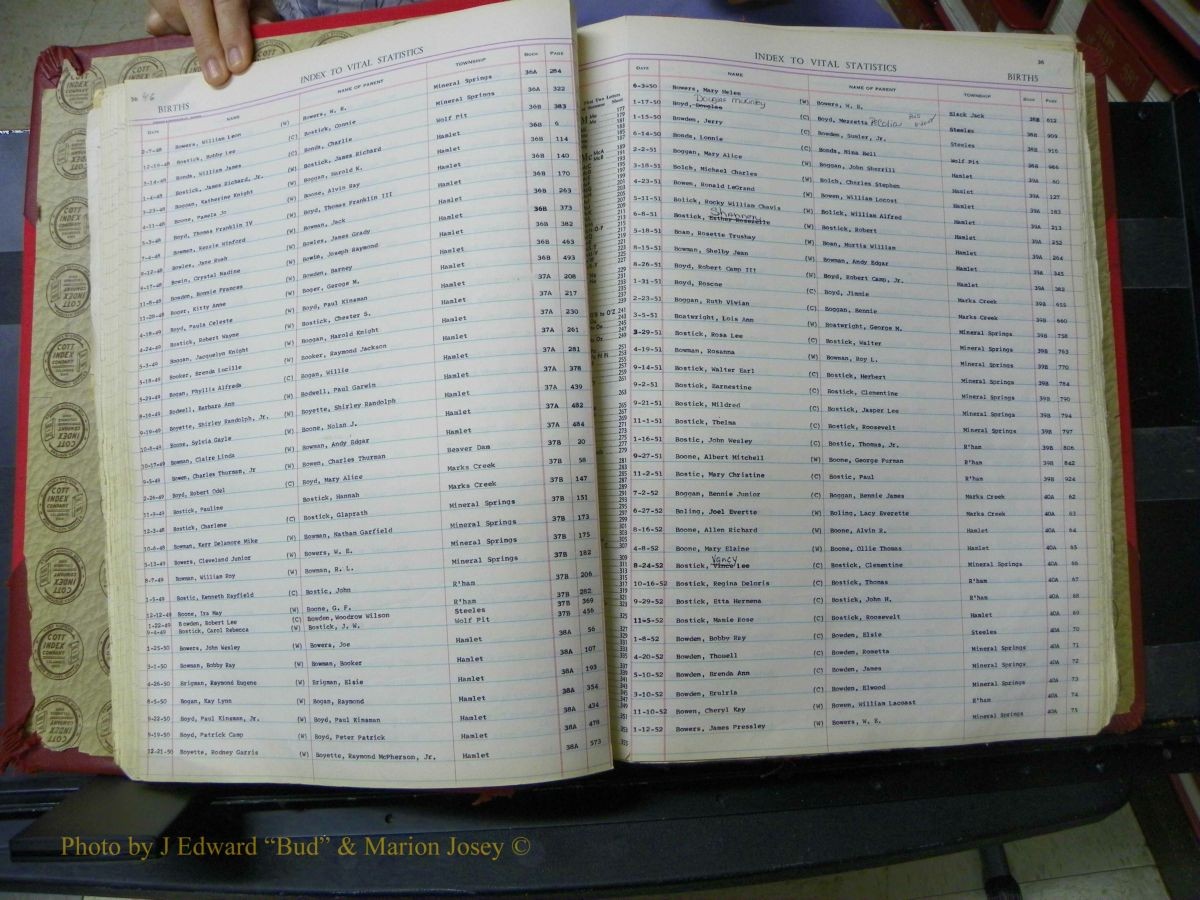 36 46 INDEX TO VITAL STATISTICS
BIRTHS
DATE NAME NAME OF PARENT TOWNSHIP BOOK PAGE
2-7-48 Bowers, William Leon (W) Bowers, W. E. Mineral Springs 36A 284
12-16-48 Bostick, Bobby Lee (C) Bostick, Connie Mineral Springs 36A 322
3-14-48 Bonds, William James (C) Bonds, Charlie Wolf Pit 36B 383
1-4-48 Bostick, James Richard, Jr. (W) Bostick, James Richard Hamlet 36B 6
9-23-48 Boggan, Katherine Knight (W) Boggan, Harold K. Hamlet 36B 114
4-11-48 Boone, Pamela Jo (W) Boone, Alvin Ray Hamlet 36B 140
5-3-48 Boyd, Thomas Franklin IV (W) Boyd, Thomas Franklin III Hamlet 36B 170
7-4-48 Bowmen, Kezzie Winford (W) Bowman, Jack Hamlet 36B 263
9-12-48 Bowles, Jane Rush (W) Bowles, James Grady Hamlet 36B 373
9-17-48 Bowin, Crystal Nadine (W) Bowie, Joseph Raymond Hamlet 36B 382
11-8-48 Bowden, Bonnie Frances (W) Bowden, Barney Hamlet 36B 463
11-28-48 Boger, Kitty Anne (W) Boger, Geroge M. Hamlet 36B 493
4-18-49 Boyd, Paula Celeste (W) Boyd, Paul Kinsman Hamlet 37A 208
4-24-49 Bostick, Robert Wayne (W) Bostick, Chester S. Hamlet 37A 217
5-3-49 Boggan, Jacquelyn Knight (W) Boggan, Harold Knight Hamlet 37A 230
5-18-49 Booker, Brenda Lucille (W) Booker, Raymond Jackson Hamlet 37A 261
5-29-49 Bogan, Phyllis Alfreda (C) Bogan, Willie Hamlet 37A 281
8-16-49 Bodwell, Barbara Ann (W) Bodwell, Paul Garwin Hamlet 37A 378
9-19-49 Boyette, Shirley Randolph, Jr. (W) Boyette, Shirley Randolph Hamlet 37A 439
10-8-49 Boone, Sylvia Gayle (W) Boone, Nolan J. Hamlet 37A 482
10-17-49 Bowman, Claire Linda (W) Bowman, Andy Edgar Hamlet 37A 484
9-5-49 Bowen, Charles Thurman, Jr (W) Bowen, Charles Thurman Beaver Dam 37B 20
2-26-49 Boyd, Robert Odel (C) Boyd, Mary Alice Marks Creek 37B 58
11-9-49 Bostick, Pauline Bostick, Hannah Marks Creek 37B 147
12-3-48 Bostick, Charlene (C) Bostick, Glaprath Mineral Springs 37B 151
10-6-48 Bowman, Kerr Delamore Mike (W) Bowman, Nathan Garfield Mineral Springs 37B 173
3-13-49 Bowers, Cleveland Junior (W) Bowers, W. E. Mineral Springs 37B 175
8-7-49 Bowman, William Roy (W) Bowman, R. L. Mineral Springs 37B 182
1-5-49 Bostic, Kenneth Rayfield (C) Bostic, John R'ham 37B 206
12-12-49 Boone, Ira May (W) Boone, G. F. R'ham 37B 282
1-22-49 Bowden, Robert Lee (C) Bowden, Woodrow Wilson Steeles 37B 369
9-4-49 Bostick, Carol Rebecca (W) Bostick, J. W. Wolf Pit 37B 456
1-25-50 Bowers, John Wesley (W) Bowers, Joe Hamlet 38A 56
3-1-50 Bowman, Bobby Ray (W) Bowman, Booker Hamlet 38A 107
4-26-50 Brigman, Raymond Eugene (W) Brigman, Elsie Hamlet 38A 193
8-5-50 Bogan, Kay Lynn (W) Bogan, Raymond Hamlet 38A 354
9-22-50 Boyd, Paul Kinsman, Jr. (W) Boyd, Paul Kinsman Hamlet 38A 434
9-19-50 Boyd, Patrick Camp (W) Boyd, Peter Patrick Hamlet 38A 478
12-21-50 Boyette, Rodney Garris (W) Boyette, Raymond McPherson, Jr. Hamlet 38A 573
INDEX TO VITAL STATISTICS 36
BIRTHS
DATE NAME NAME OF PARENT TOWNSHIP BOOK PAGE
6-3-50 Bowers, Mary Helen (W) Bowers, W. E. Black Jack 38B 612
1-17-50 Boyd, Douglas Douglas McKinley (C) Boyd, Mezzetta Steeles 38B 909
1-15-50 Bowden, Jerry (C) Bowden, Susler, Jr. Steeles 38B 916
6-14-50 Bonds, Lonnie (C) Bonds, Nina Bell Wolf Pit 38B 986
2-2-51 Boggan, Mary Alice (W) Boggan, John Sherrill Hamlet 39A 60
3-18-51 Bolch, Michael Charles (W) Bolch, Charles Stephen Hamlet 39A 127
4-23-51 Bowen, Ronald LeGrand (W) Bowen, William Locost Hamlet 39A 183
5-11-51 Bolick, Rocky William Chavis (W) Bolick, William Alfred Hamlet 39A 213
6-8-51 Bostick, Esther Roserelle Shannon (W) Bostick, Robert Hamlet 39A 252
5-18-51 Boan, Rosette Trushay (W) Boan, Murtis William Hamlet 39A 264
8-15-51 Bowman, Shelby Jean (W) Bowman, Andy Edgar Hamlet 39A 345
8-26-51 Boyd, Robert Camp III (W) Boyd, Robert Camp, Jr. Hamlet 39A 382
1-31-51 Boyd, Roscoe (C) Boyd, Jimmie Marks Creek 39B 655
2-23-51 Boggan, Ruth Vivian (C) Boggan, Bennie Marks Creek 39B 660
3-5-51 Boatwright, Lois Ann (W) Boatwright, George M. Mineral Springs 39B 758
3-29-51 Bostick, Rosa Lee (C) Bostick, Walter Mineral Springs 39B 763
4-19-51 Bowman, Rosanna (W) Bowman, Roy L. Mineral Springs 39B 770
9-14-51 Bostick, Walter Earl (C) Bostick, Herbert Mineral Springs 39B 784
9-2-51 Bostick, Earnestine (C) Bostick, Clementine Mineral Springs 39B 790
9-21-51 Bostick, Mildred (C) Bostick, Jasper Lee Mineral Springs 39B 794
11-1-51 Bostick, Thelma (C) Bostick, Roosevelt Mineral Springs 39B 797
1-16-51 Bostic, John Wesley (C) Bostic, Thomas, Jr. R'ham 39B 806
9-27-51 Boone, Albert Mitchell (W) Boone, George Furman R'ham 39B 842
11-2-51 Bostic, Mary Christine (C) Bostic, Paul R'ham 39B 924
7-2-52 Boggan, Bennie Junior (C) Boggan, Bennie James Marks Creek 40A 62
6-27-52 Boling, Joel Evertte (W) Boling, Lacy Everette Marks Creek 40A 63
8-16-52 Boone, Allen Richard (W) Boone, Alvin R. Hamlet 40A 64
4-8-52 Boone, Mary Elaine (W) Boone, Ollie Thomas Hamlet 40A 65
8-24-52 Bostick, Vince Lee Vancy (C) Bostick, Clementine Mineral Springs 40A 66
10-16-52 Bostick, Regina Deloris (C) Bostick, Thomas R'ham 40A 67
9-29-52 Bostick, Etta Hermena (C) Bostick, John H. R'ham 40A 68
11-5-52 Bostick, Mamie Rose (C) Bostick, Roosevelt Hamlet 40A 69
1-8-52 Bowden, Bobby Ray (C) Bowden, Elsie Steeles 40A 70
4-20-52 Bowden, Thouell (C) Bowden, Rometta Mineral Springs 40A 71
5-10-52 Bowden, Brenda Ann (C) Bowden, James Mineral Springs 40A 72
3-10-52 Bowden, Erulria (C) Bowden, Elwood Mineral Springs 40A 73
11-10-52 Bowen, Cheryl Kay (W) Bowen, William Lacoast R'ham 40A 74
1-12-52 Bowers, James Pressley (W) Bowers, W. E. Mineral Springs 40A 75
COTT INDEX COMPANY
Photo by J Edward “Bud” & Marion Josey ©